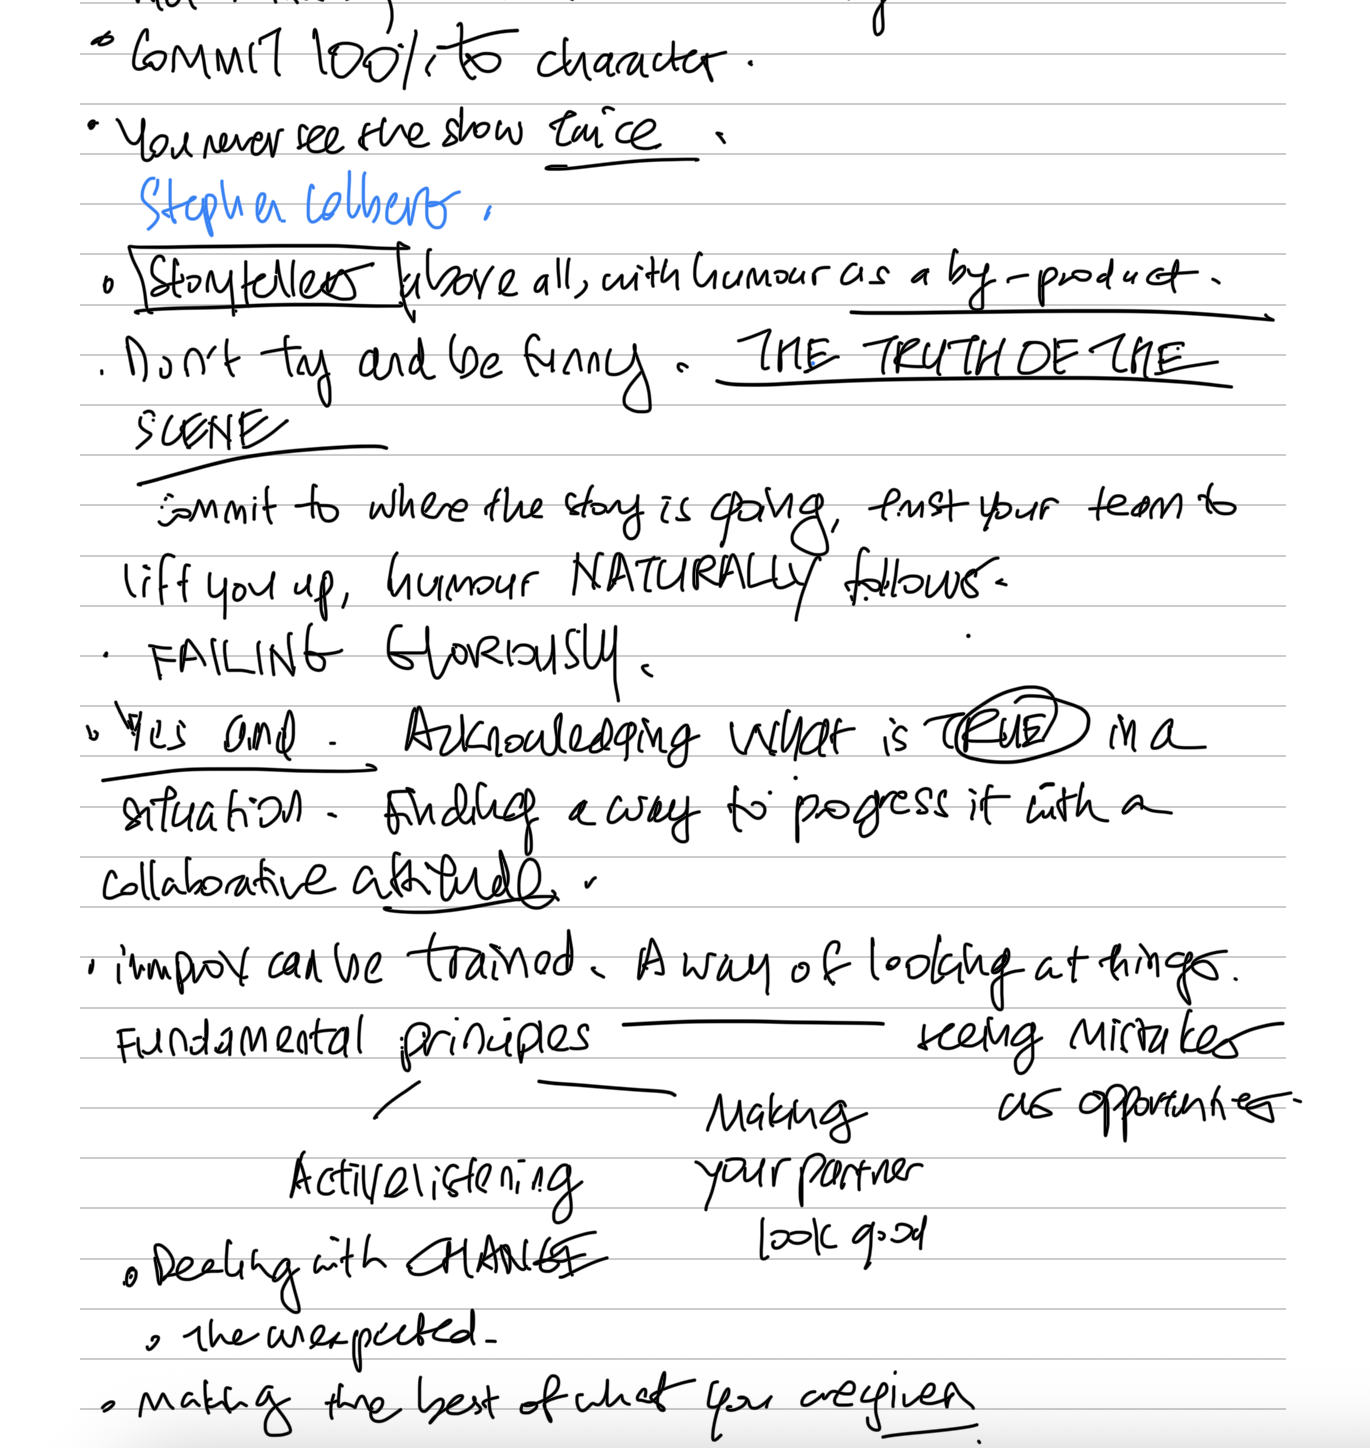 • COMMIT 100% to character.
• You never see the show twice.
Stephen Colbert.
• Storytellers above all, with humour as a by-product.
. Don't try and be funny. THE TRUTH OF THE
SCENE
commit to where the story is going, trust your team to
lift you up, humour NATURALLY follows.
• FAILING GLORIOUSLY.
• Yes and. Acknowledging what is TRUE in a
situation. Finding a way to progress it with a
collaborative attitude.
• improv can be trained. A way of looking at things.
Fundamental principles — seeing mistakes
as opportunities.
Making
your partner
look good
Active listening
• Dealing with CHANGE
• the unexpected.
• Making the best of what you are given.